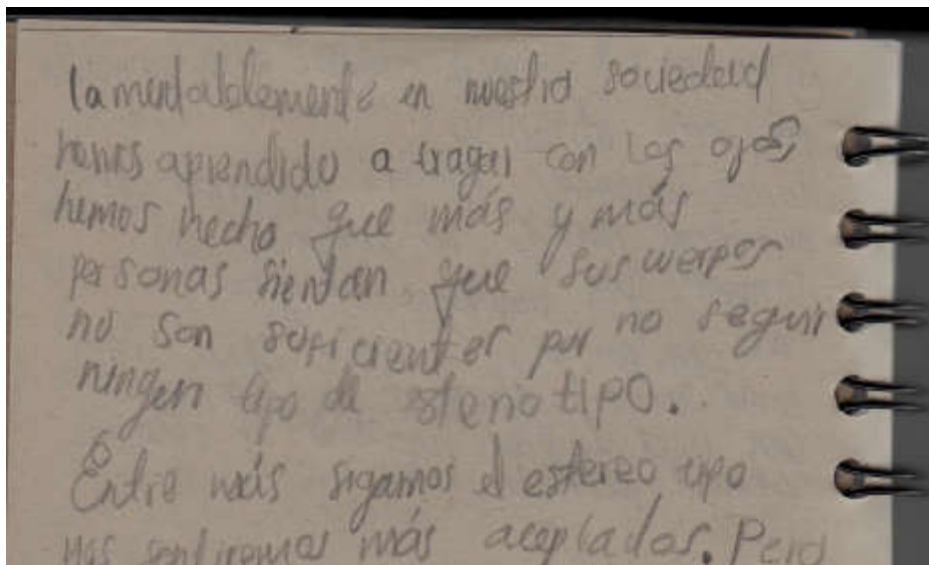 lamentablemente en nuestra sociedad
hemos aprendido a tragar con los ojos,
hemos hecho que más y más
personas sientan que sus cuerpos
no son suficientes por no seguir
ningun tipo de estereotipo.
Entre más sigamos el estereotipo
nos sentiremos más aceptados. Pero